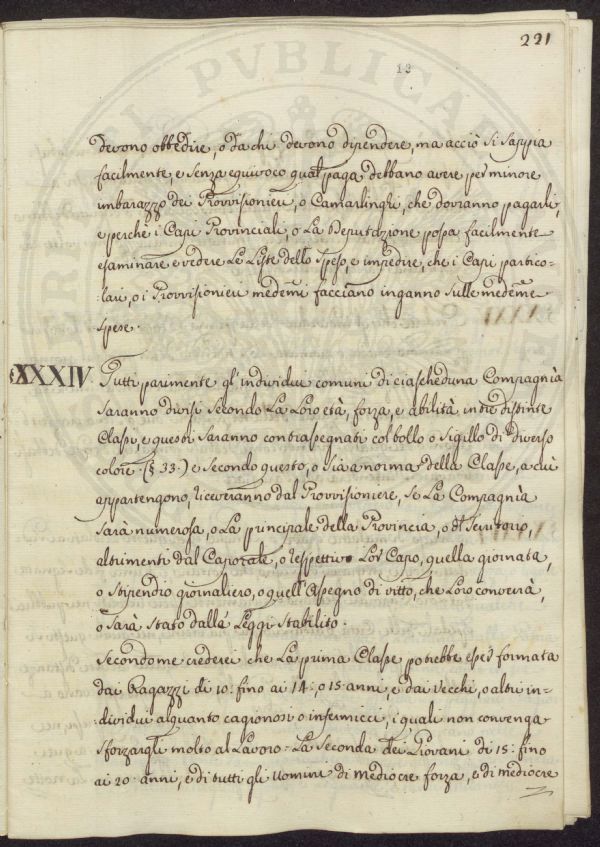 221
13
devono obbedire, o da chi devono dipendere, ma acciò si sappia
facilmente, e senza equivoco qual paga debbano avere per minore
imbarazzo dei Provvisionieri, o Camarlinghi, che dovranno pagarli,
e perchè i Capi Provinciali, o La Deputazione possa facilmente
esaminare e vedere Le Liste dello speso, e impedire, che i Capi partico-
-lari, o i Provvisionieri medemi facciano inganno sulle medeme
spese.
XXXIV. Tutti parimente gl'individui comuni di ciascheduna Compagnìa
saranno divisi secondo La Loro età, forza, e abilità in tre distinte
Classi, e questi saranno contrassegnati col bollo o sigillo di diverso
colore. (§ 33.) e secondo questo, o sia a norma della Classe, a cui
appartengono, riceveranno dal Provvisioniere, se La Compagnìa
sarà numerosa, o La principale della Provincia, o del Territorio,
altrimenti dal Caporale, o respettivo Lor Capo, quella giornata,
o stipendio giornaliero, o quell'Assegno di vitto, che Loro converrà,
o sarà stato dalle Leggi stabilito.
Secondo me crederei che La prima Classe potrebbe esser formata
dai Ragazzi di 10: fino ai 14:, o 15 anni, e dai vecchi, o altri in-
-dividui alquanto cagionosi o infermicci, i quali non convenga
sforzargli molto al Lavoro - La seconda dei Giovani di 15: fino
ai 20 anni, e di tutti gli Uomini di mediocre forza, e di mediocre